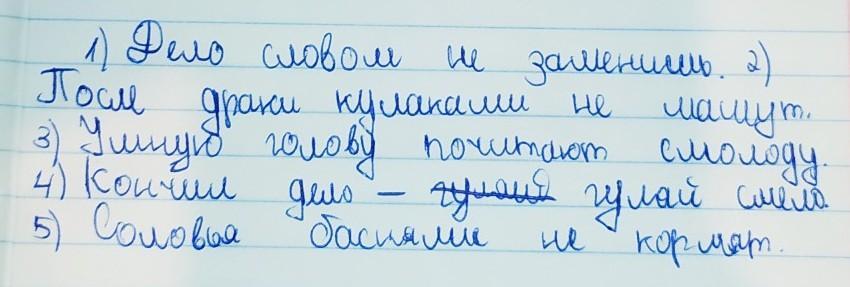 1) Дело словом не заменишь. 2)
После драки кулаками не машут.
3) Умную голову почитают смолоду.
4) Кончил дело – гулай смело.
5) Соловья баснями не кормят.